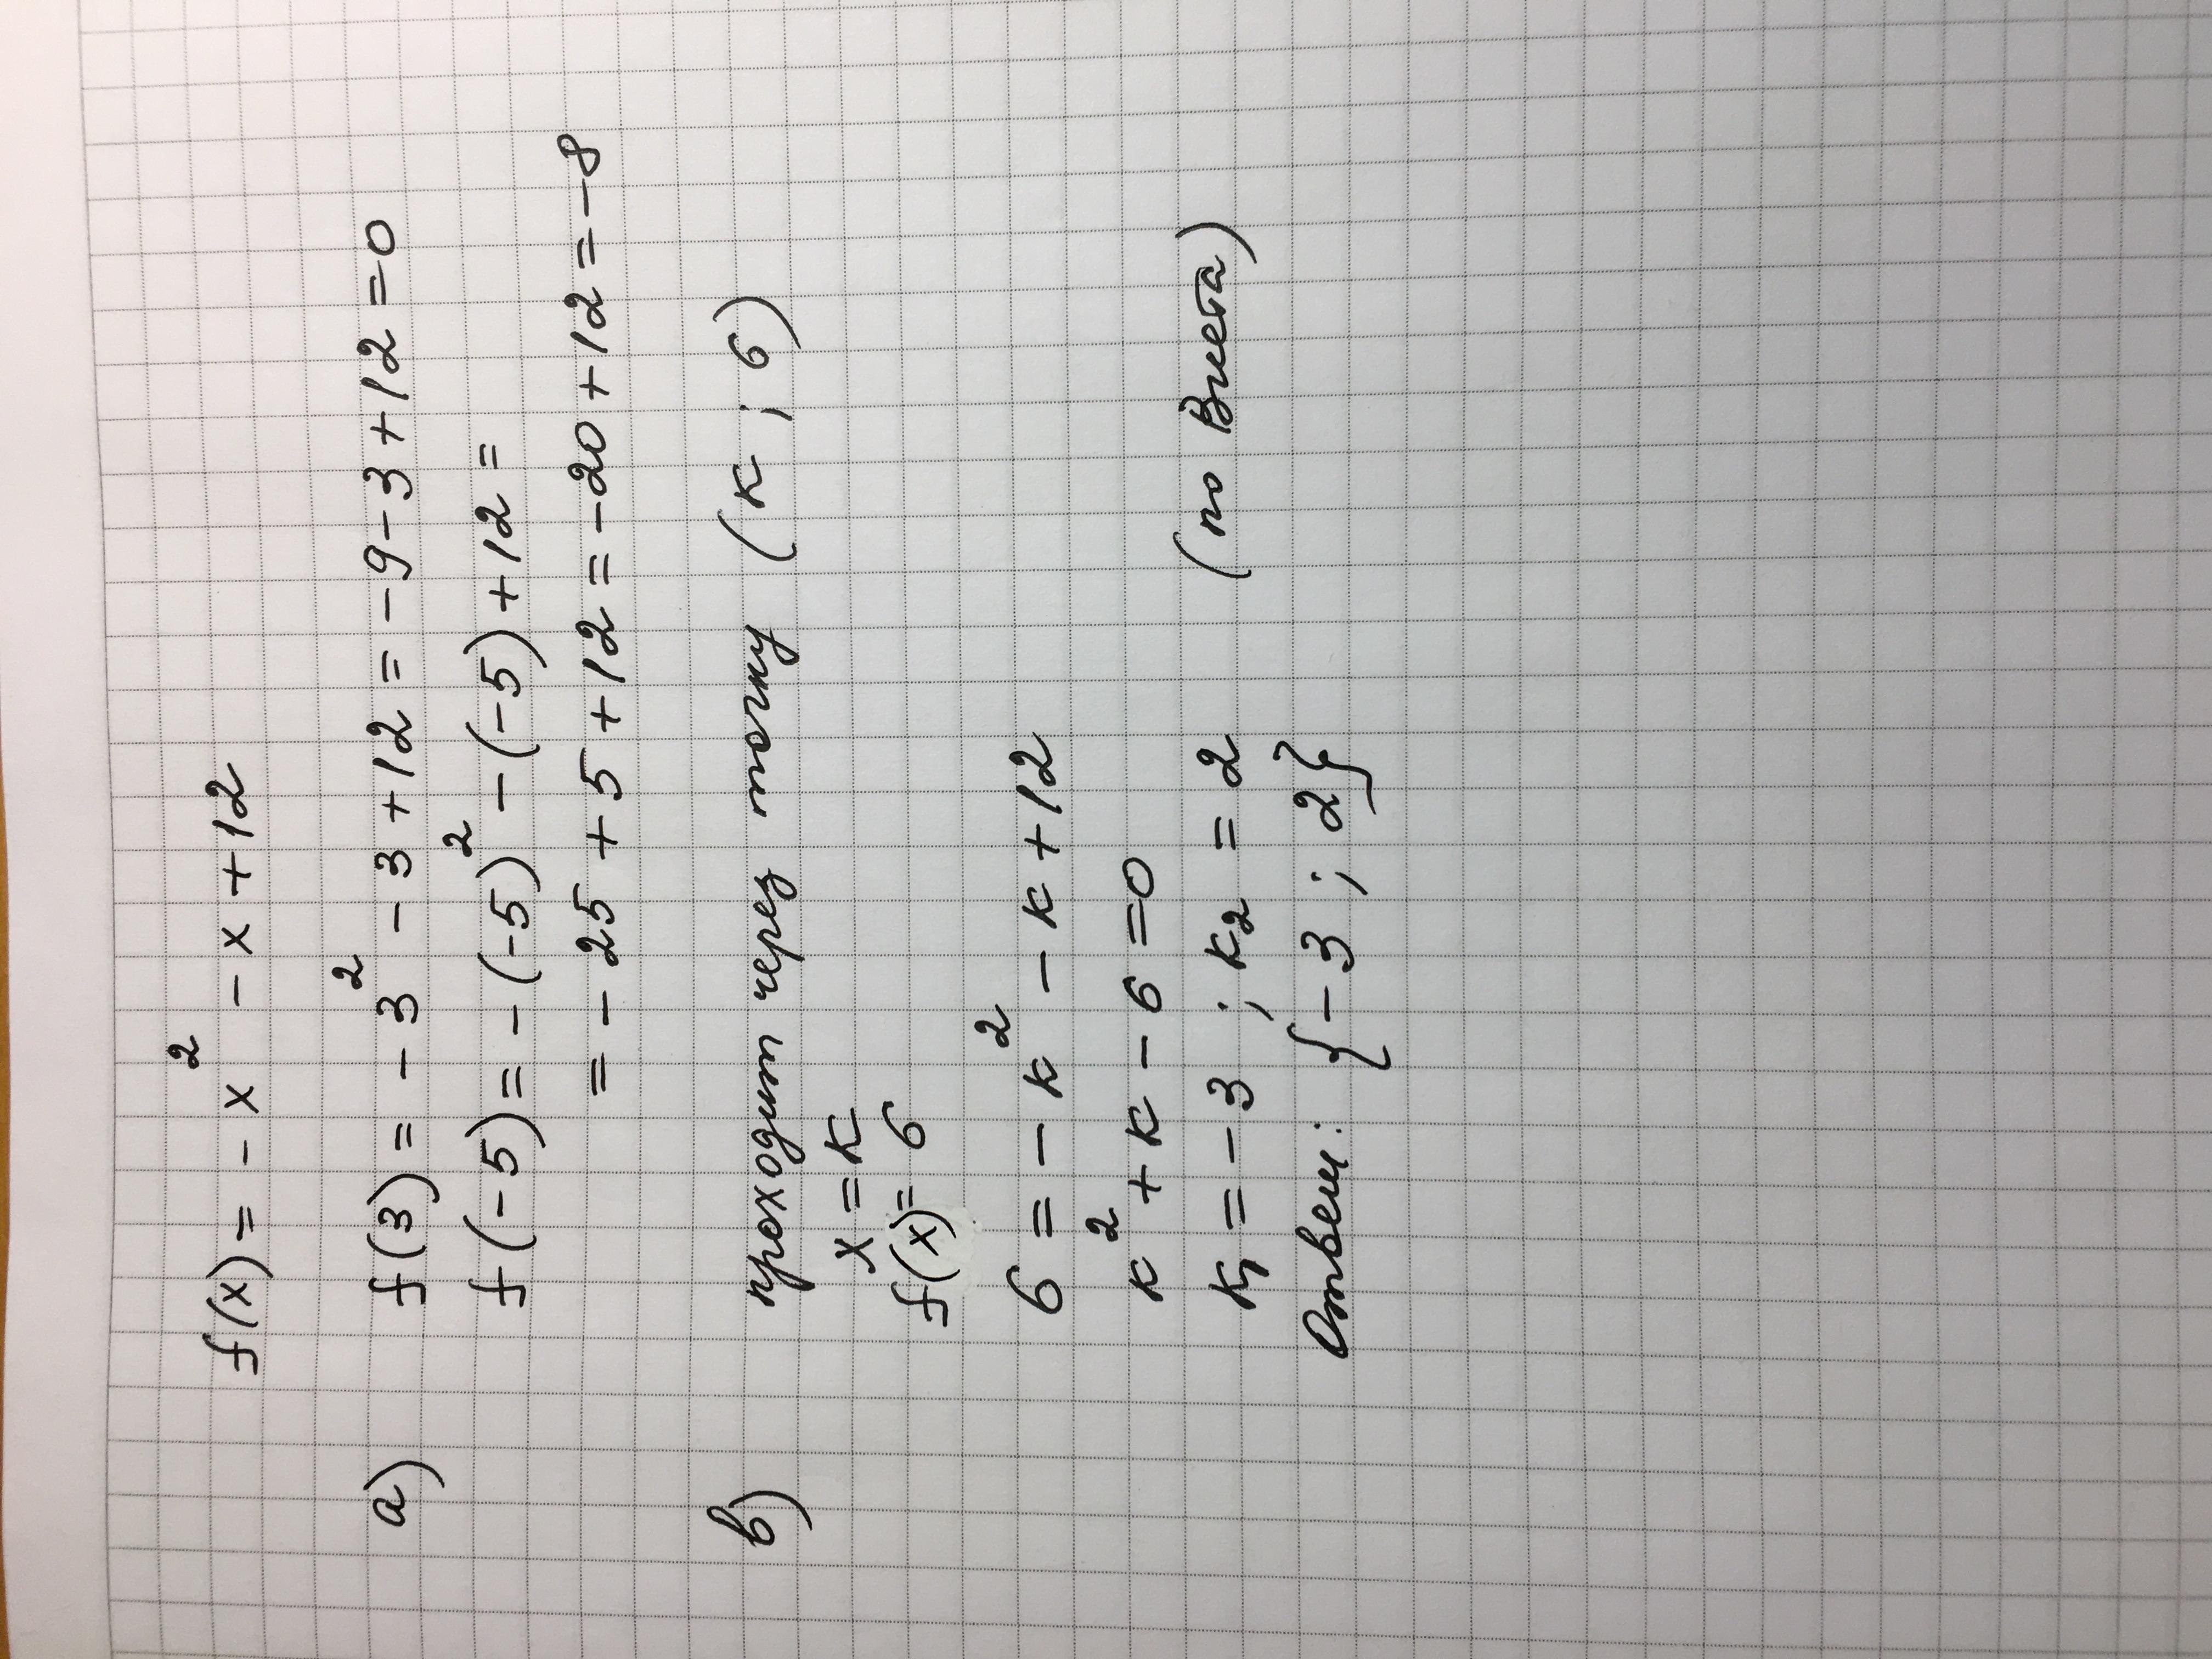 f(x) = - x² - x + 12
a) f(3) = - 3² - 3 + 12 = - 9 - 3 + 12 = 0
f(-5) = - (-5)² - (-5) + 12 =
= - 25 + 5 + 12 = - 20 + 12 = - 8
в) проходит через точку (к ; 6)
x = к
f(x) = 6
6 = - к² - к + 12
к² + к - 6 = 0
к₁ = - 3 ; к₂ = 2 (по Виета)
Ответ: {-3 ; 2}